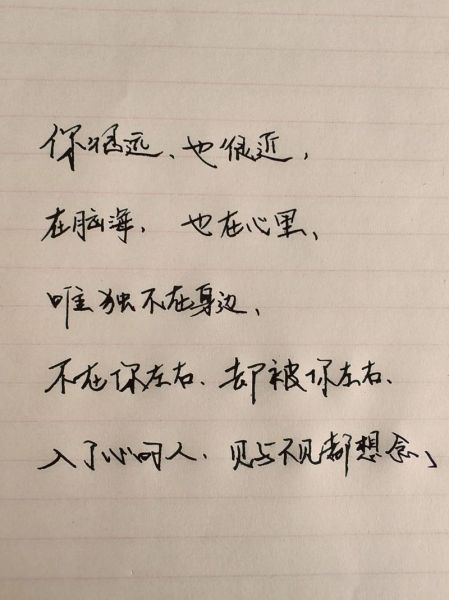 你很远、也很近，
在脑海，也在心里、
唯独不在身边、
不在你左右、却被你左右、
入了心的人、见与不见都想念、